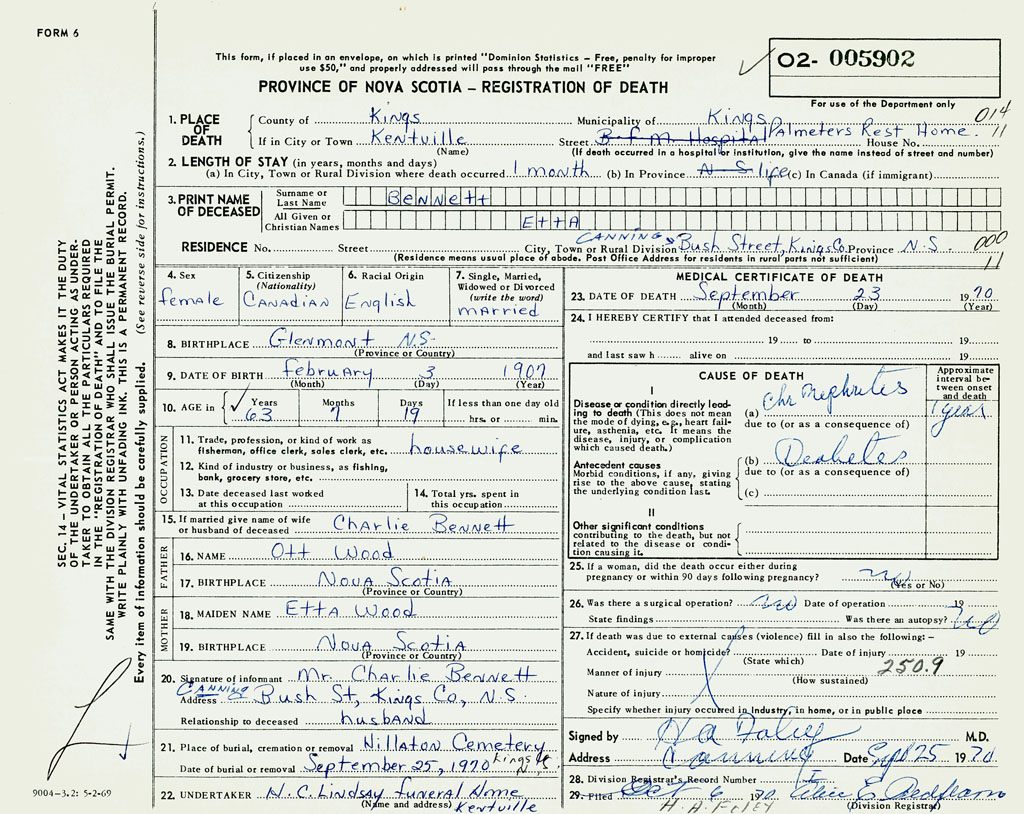 FORM 6
This form, if placed in an envelope, on which is printed "Dominion Statistics – Free, penalty for improper
use $50," and properly addressed will pass through the mail "FREE"
PROVINCE OF NOVA SCOTIA – REGISTRATION OF DEATH
02- 005902
For use of the Department only
014
11
1. PLACE OF DEATH
County of Kings Municipality of Kings
If in City or Town Kentville Street B F M Hospital Palmeters Rest Home. House No.
(Name) (If death occurred in a hospital or institution, give the name instead of street and number)
2. LENGTH OF STAY (in years, months and days)
(a) In City, Town or Rural Division where death occurred 1 month (b) In Province N S life (c) In Canada (if immigrant)
3. PRINT NAME OF DECEASED
Surname or Last Name BENNETT
All Given or Christian Names ETTA
RESIDENCE No. Street City, Town or Rural Division CANNING Bush Street, Kings Co. Province N.S.
000
11
(Residence means usual place of abode. Post Office Address for residents in rural parts not sufficient)
4. Sex
female
5. Citizenship
(Nationality)
CANADIAN
6. Racial Origin
English
7. Single, Married,
Widowed or Divorced
(write the word)
married
8. BIRTHPLACE Glenmont N.S.
(Province or Country)
9. DATE OF BIRTH february 3 1907
(Month) (Day) (Year)
10. AGE in Years Months Days If less than one day old
63 7 19 hrs. or min.
OCCUPATION
11. Trade, profession, or kind of work as
fisherman, office clerk, sales clerk, etc. housewife
12. Kind of industry or business, as fishing,
bank, grocery store, etc.
13. Date deceased last worked
at this occupation
14. Total yrs. spent in
this occupation
15. If married give name of wife
or husband of deceased Charlie Bennett
FATHER
16. NAME Ott Wood
17. BIRTHPLACE Nova Scotia
(Province or Country)
MOTHER
18. MAIDEN NAME Etta Wood
19. BIRTHPLACE Nova Scotia
(Province or Country)
20. Signature of informant Mr. Charlie Bennett
CANNING
Address Bush St, Kings Co, N.S.
Relationship to deceased husband
21. Place of burial, cremation or removal Hillaton Cemetery
Date of burial or removal September 25, 1970 Kings
22. UNDERTAKER H. C. Lindsay funeral Home
(Name and address) Kentville
MEDICAL CERTIFICATE OF DEATH
23. DATE OF DEATH September 23 1970
(Month) (Day) (Year)
24. I HEREBY CERTIFY that I attended deceased from:
19 to 19
and last saw h alive on 19
CAUSE OF DEATH
Approximate
interval be-
tween onset
and death
I
Disease or condition directly lead-
ing to death (This does not mean
the mode of dying, e.g., heart fail-
ure, asthenia, etc. It means the
disease, injury, or complication
which caused death.)
(a) Chr Nephrites
1 year
due to (or as a consequence of)
Antecedent causes
Morbid conditions, if any, giving
rise to the above cause, stating
the underlying condition last.
(b) Deabetes
due to (or as a consequence of)
(c)
II
Other significant conditions
contributing to the death, but not
related to the disease or condi-
tion causing it.
25. If a woman, did the death occur either during
pregnancy or within 90 days following pregnancy? no
(Yes or No)
26. Was there a surgical operation? no Date of operation 19
State findings Was there an autopsy? no
27. If death was due to external causes (violence) fill in also the following: –
Accident, suicide or homicide? Date of injury 19
(State which)
Manner of injury 250.9
(How sustained)
Nature of injury
Specify whether injury occurred in Industry, in home, or in public place
Signed by M.D.
Address Canning Date Sept 25 1970
28. Division Registrar's Record Number
29. Filed Oct 6 1970
H. A. FOLEY (Division Registrar)
SEC. 14 – VITAL STATISTICS ACT MAKES IT THE DUTY
OF THE UNDERTAKER OR PERSON ACTING AS UNDER-
TAKER TO OBTAIN ALL THE PARTICULARS REQUIRED
IN THE "REGISTRATION OF DEATH" AND TO FILE THE
SAME WITH THE DIVISION REGISTRAR WHO SHALL ISSUE THE BURIAL PERMIT.
WRITE PLAINLY WITH UNFADING INK. THIS IS A PERMANENT RECORD.
Every item of information should be carefully supplied. (See reverse side for instructions.)
9004-3.2: 5-2-69